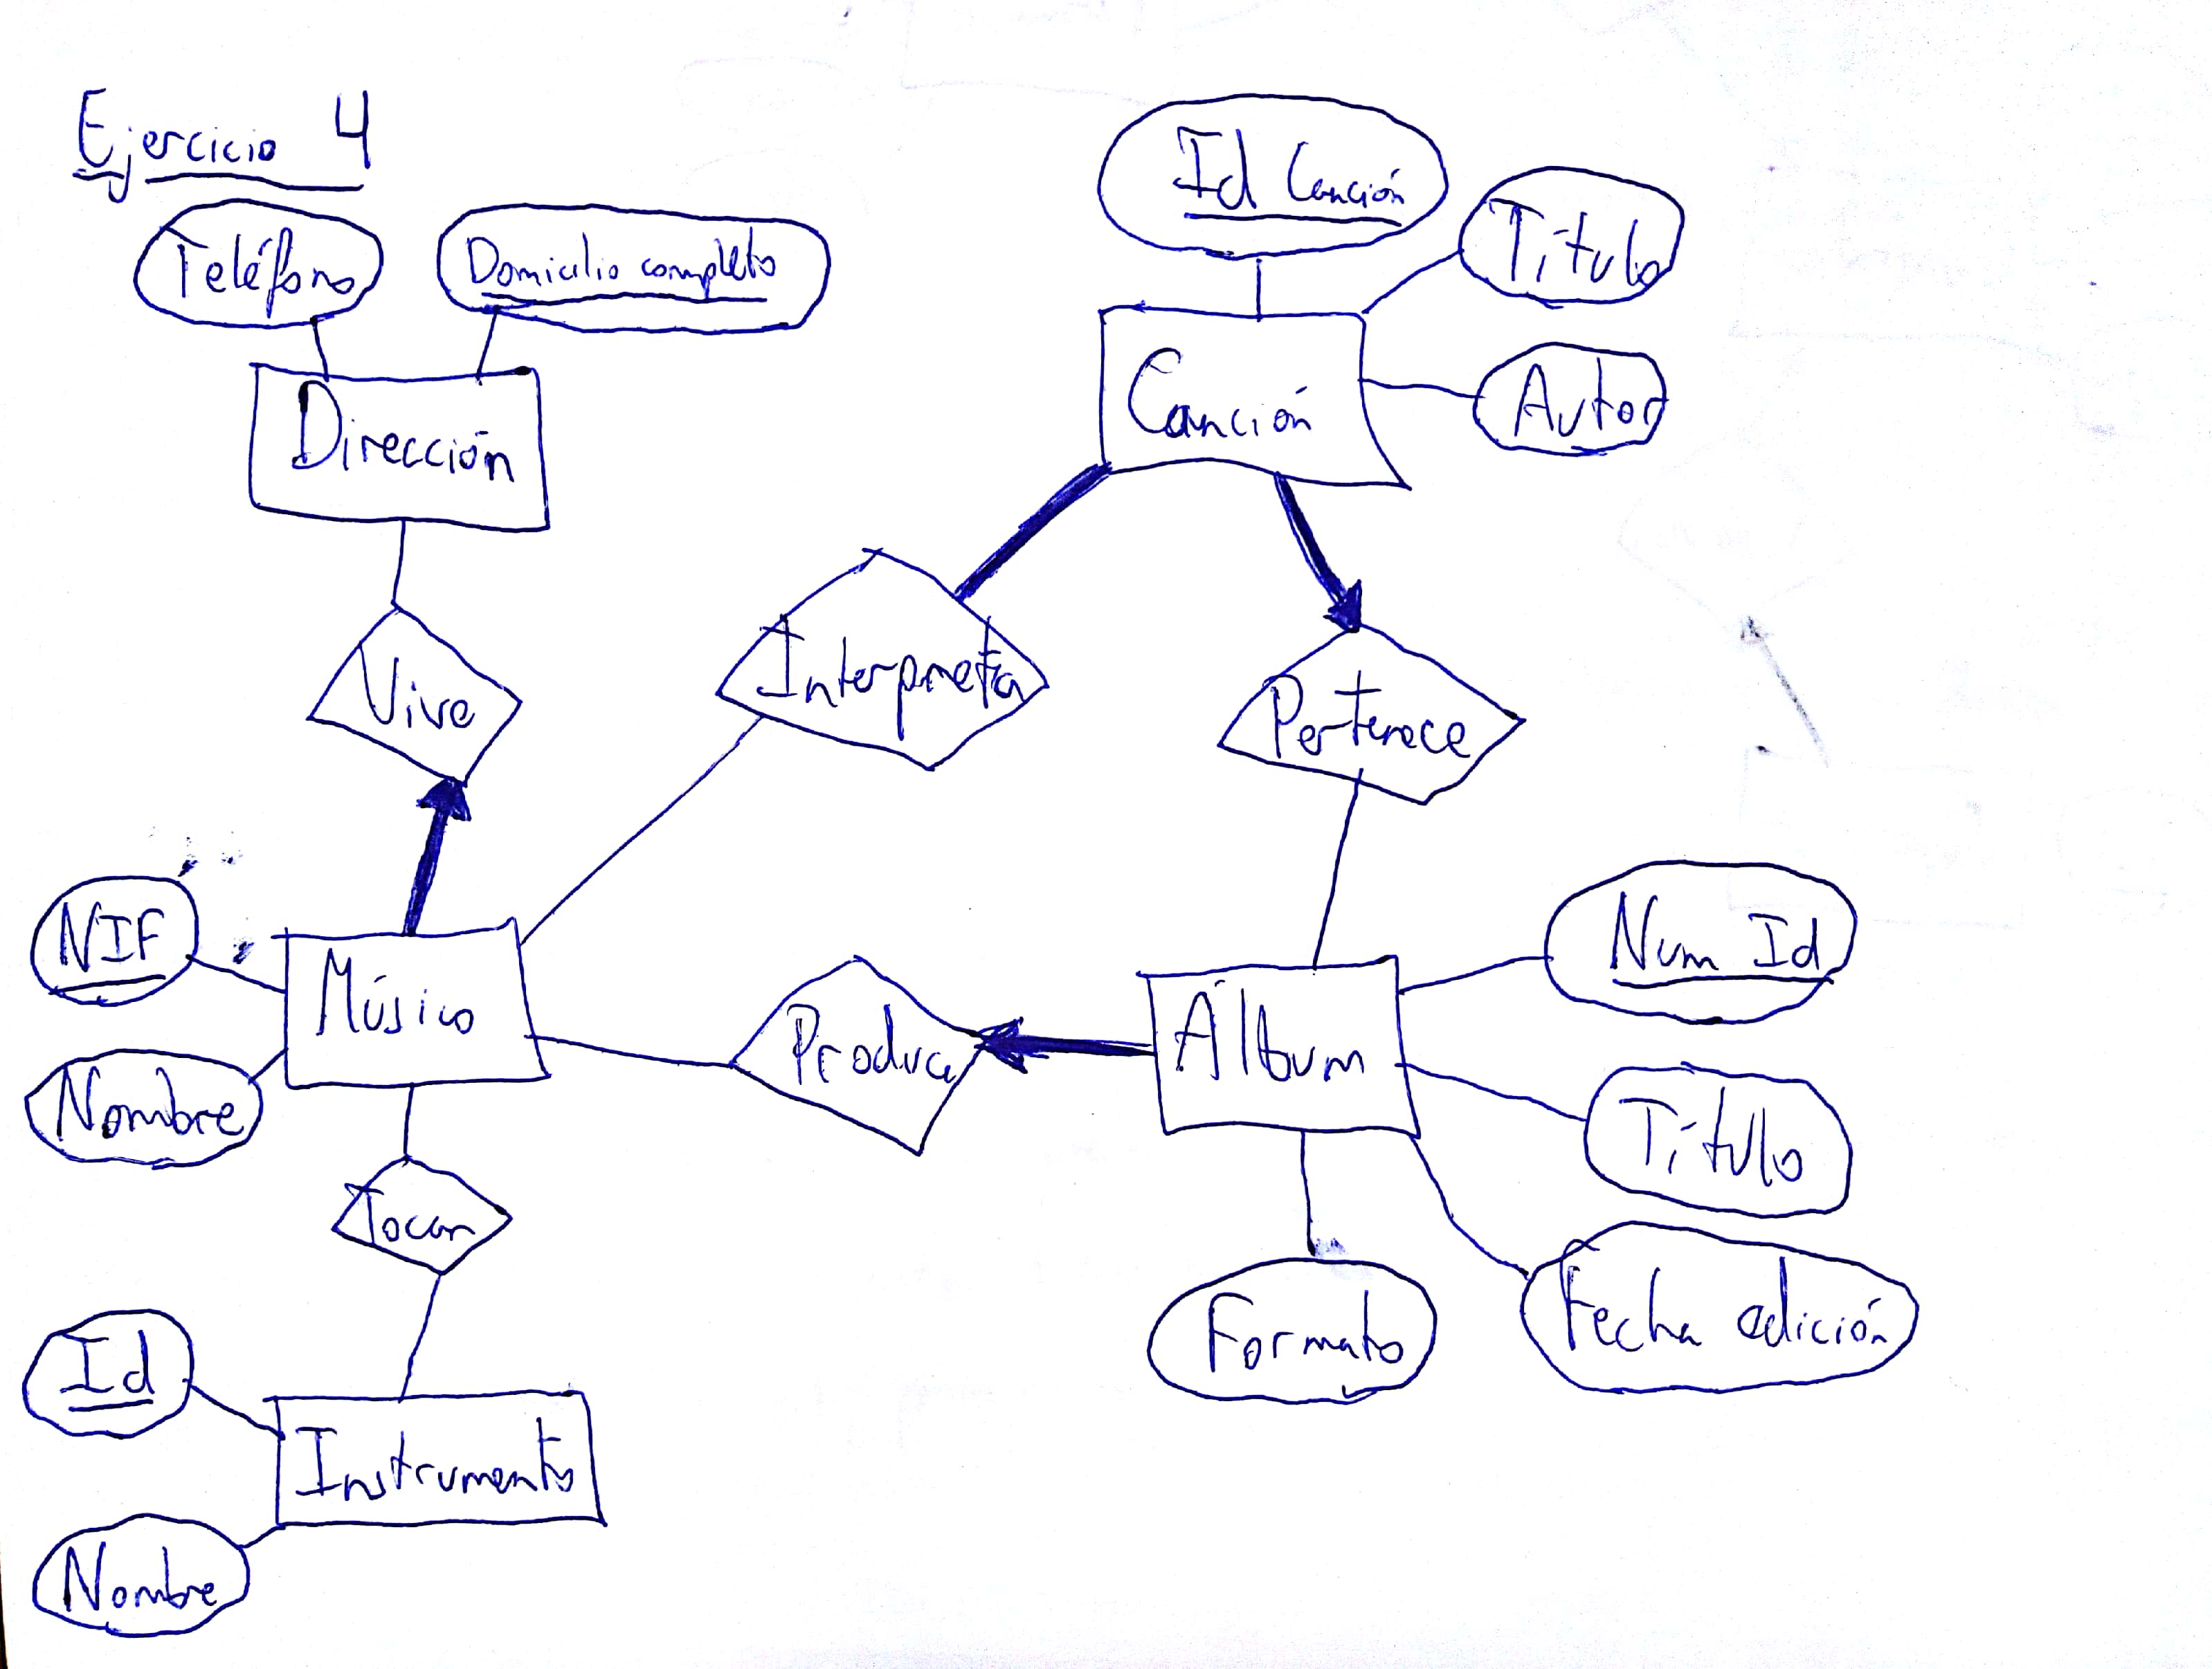 Ejercicio 4
Teléfono
Domicilio completo
Dirección
Id Canción
Título
Autor
Canción
Vive
Interpreta
Pertenece
NIF
Nombre
Músico
Produce
Álbum
Num Id
Título
Fecha edición
Formato
Tocar
Id
Instrumento
Nombre